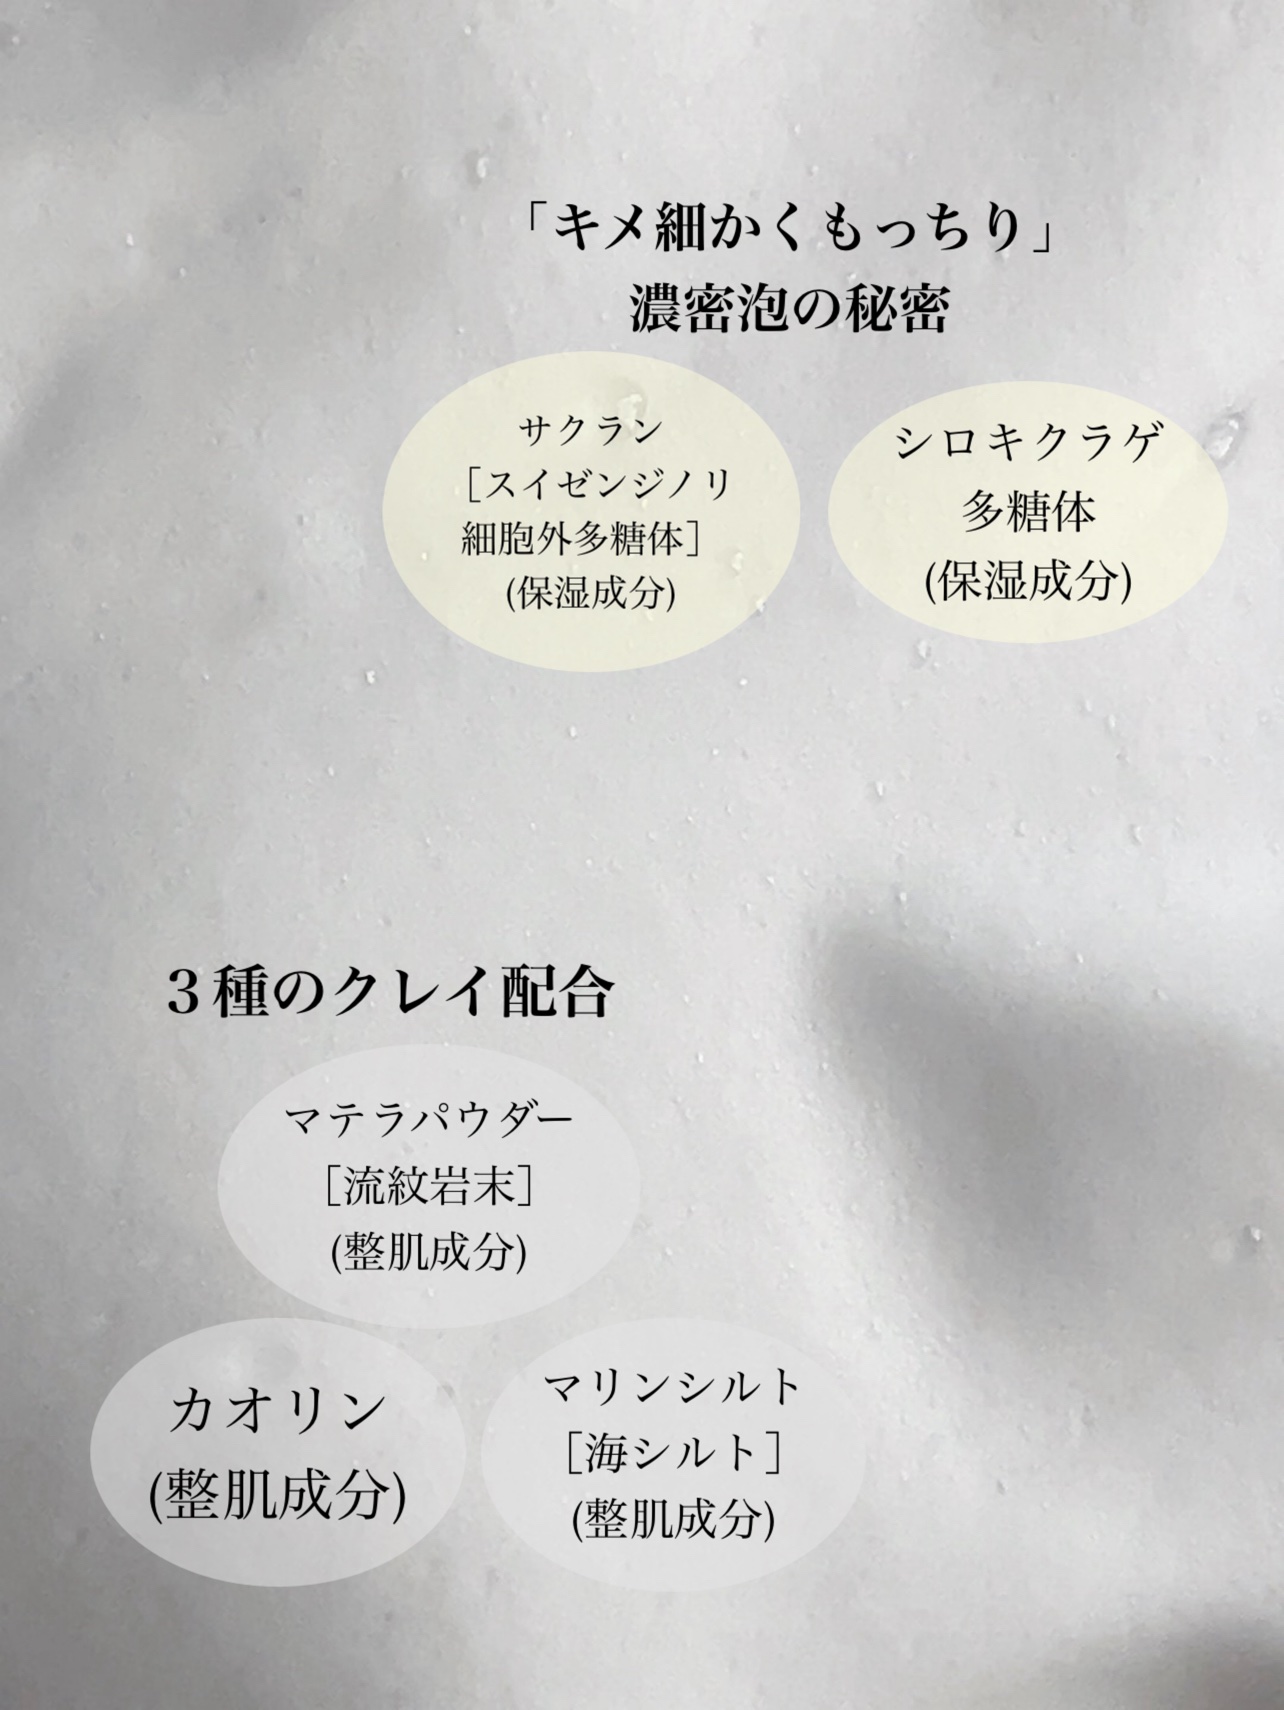 「キメ細かくもっちり」
濃密泡の秘密
サクラン
［スイゼンジノリ
細胞外多糖体］
(保湿成分)
シロキクラゲ
多糖体
(保湿成分)
３種のクレイ配合
マテラパウダー
［流紋岩末］
(整肌成分)
カオリン
(整肌成分)
マリンシルト
［海シルト］
(整肌成分)